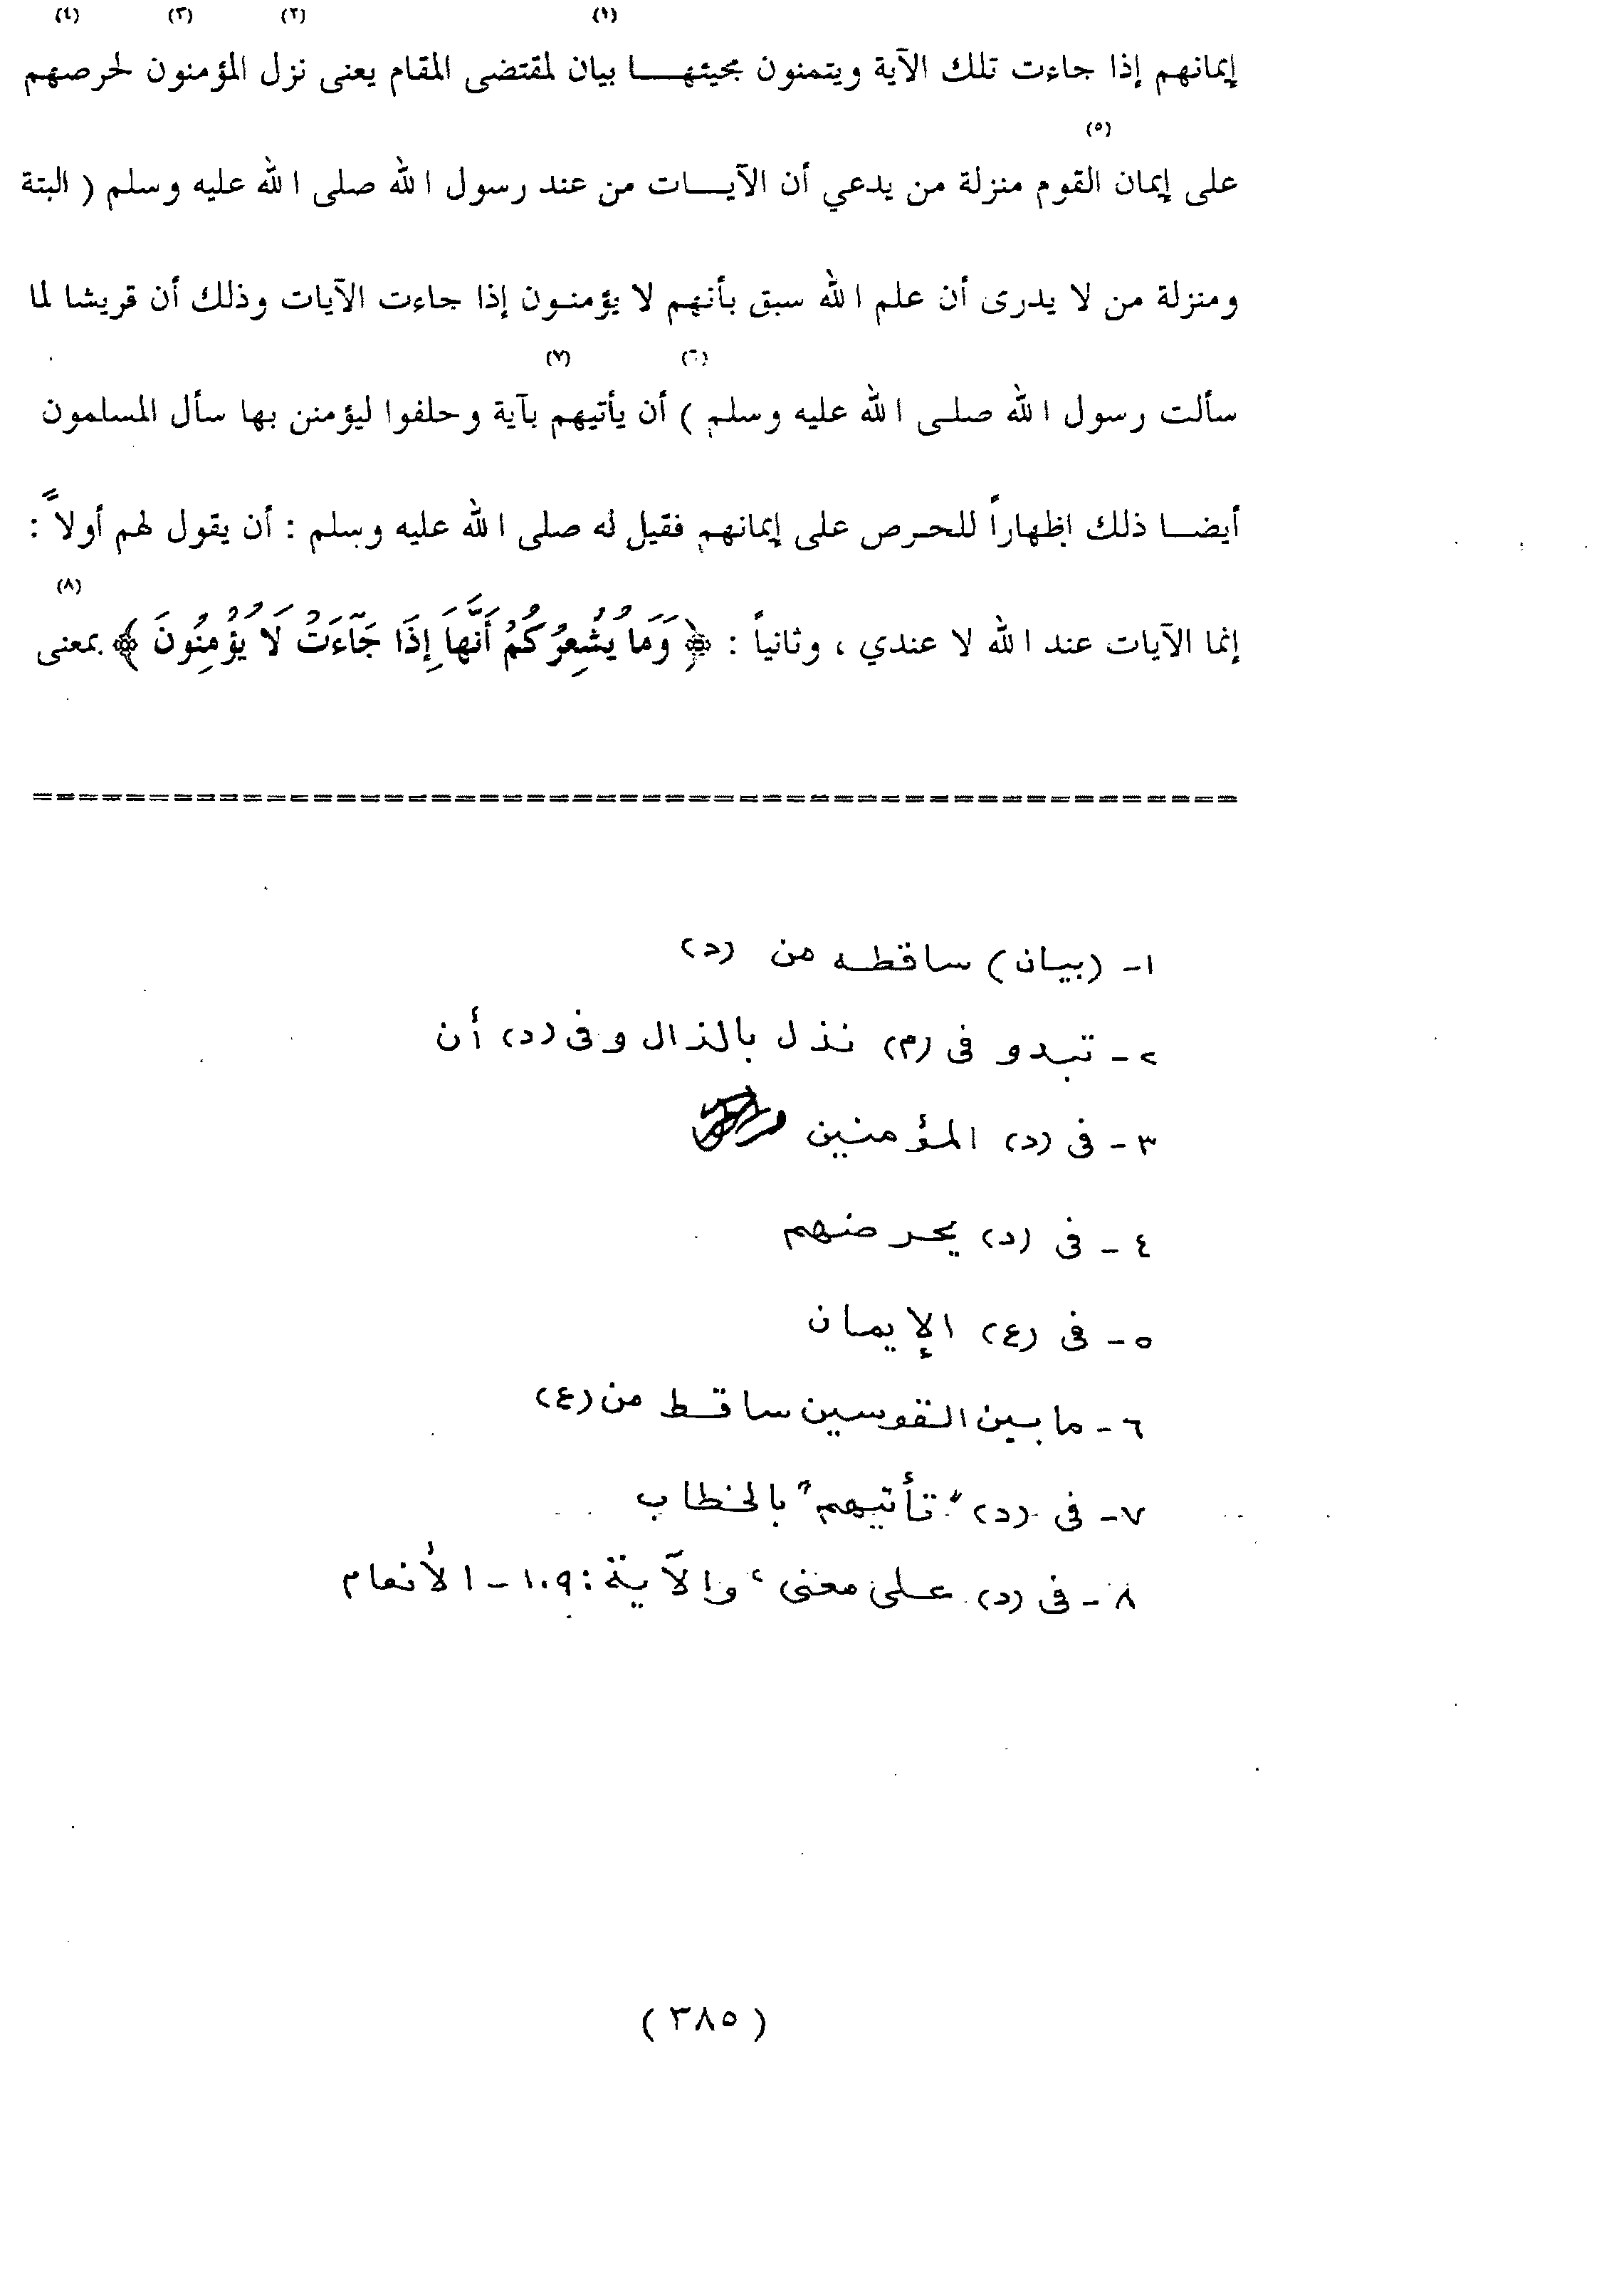 (١) (٢) (٣) (٤)
إيمانهم إذا جاءت تلك الآية ويتمنون مجيئهـــا بيان لمقتضى المقام يعنى نزل المؤمنون لحرصهم
(٥)
على إيمان القوم منزلة من يدعي أن الآيـــات من عند رسول الله صلى الله عليه وسلم ( البتة
ومنزلة من لا يدرى أن علم الله سبق بأنهم لا يؤمنـون إذا جاءت الآيات وذلك أن قريشا لما
(٦) (٧)
سألت رسول الله صلـى الله عليه وسلم ) أن يأتيهم بآية وحلفوا ليؤمنن بها سأل المسلمون
أيضـــا ذلك اظهاراً للحـرص على إيمانهم فقيل له صلى الله عليه وسلم : أن يقول لهم أولاً :
(٨)
إنما الآيات عند الله لا عندي ، وثانياً : ﴿ وَمَا يُشْعِرُكُمْ أَنَّهَا إِذَا جَآءَتْ لَا يُؤْمِنُونَ ﴾ بمعنى
١- (بيان) ساقطه من (د)
٢- تبدو فى (م) نذل بالذال وفى (د) أن
٣- فى (د) المؤمنين
٤- فى (د) يحرضهم
٥- فى (ع) الإيمان
٦- ما بين القوسين ساقط من (ع)
٧- فى (د) "تأتيهم" بالخطاب
٨- فى (د) على معنى، والآية: ١٠٩- الأنعام
( ٣٨٥ )